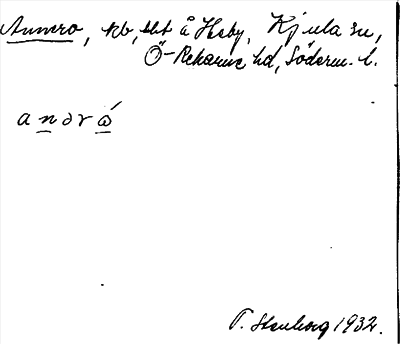 Annero, tb, sbt å Hsby, Kjula sn,
Ö-Rekarne hd, Söderm. l.
anərώ
T. Stenborg 1932.